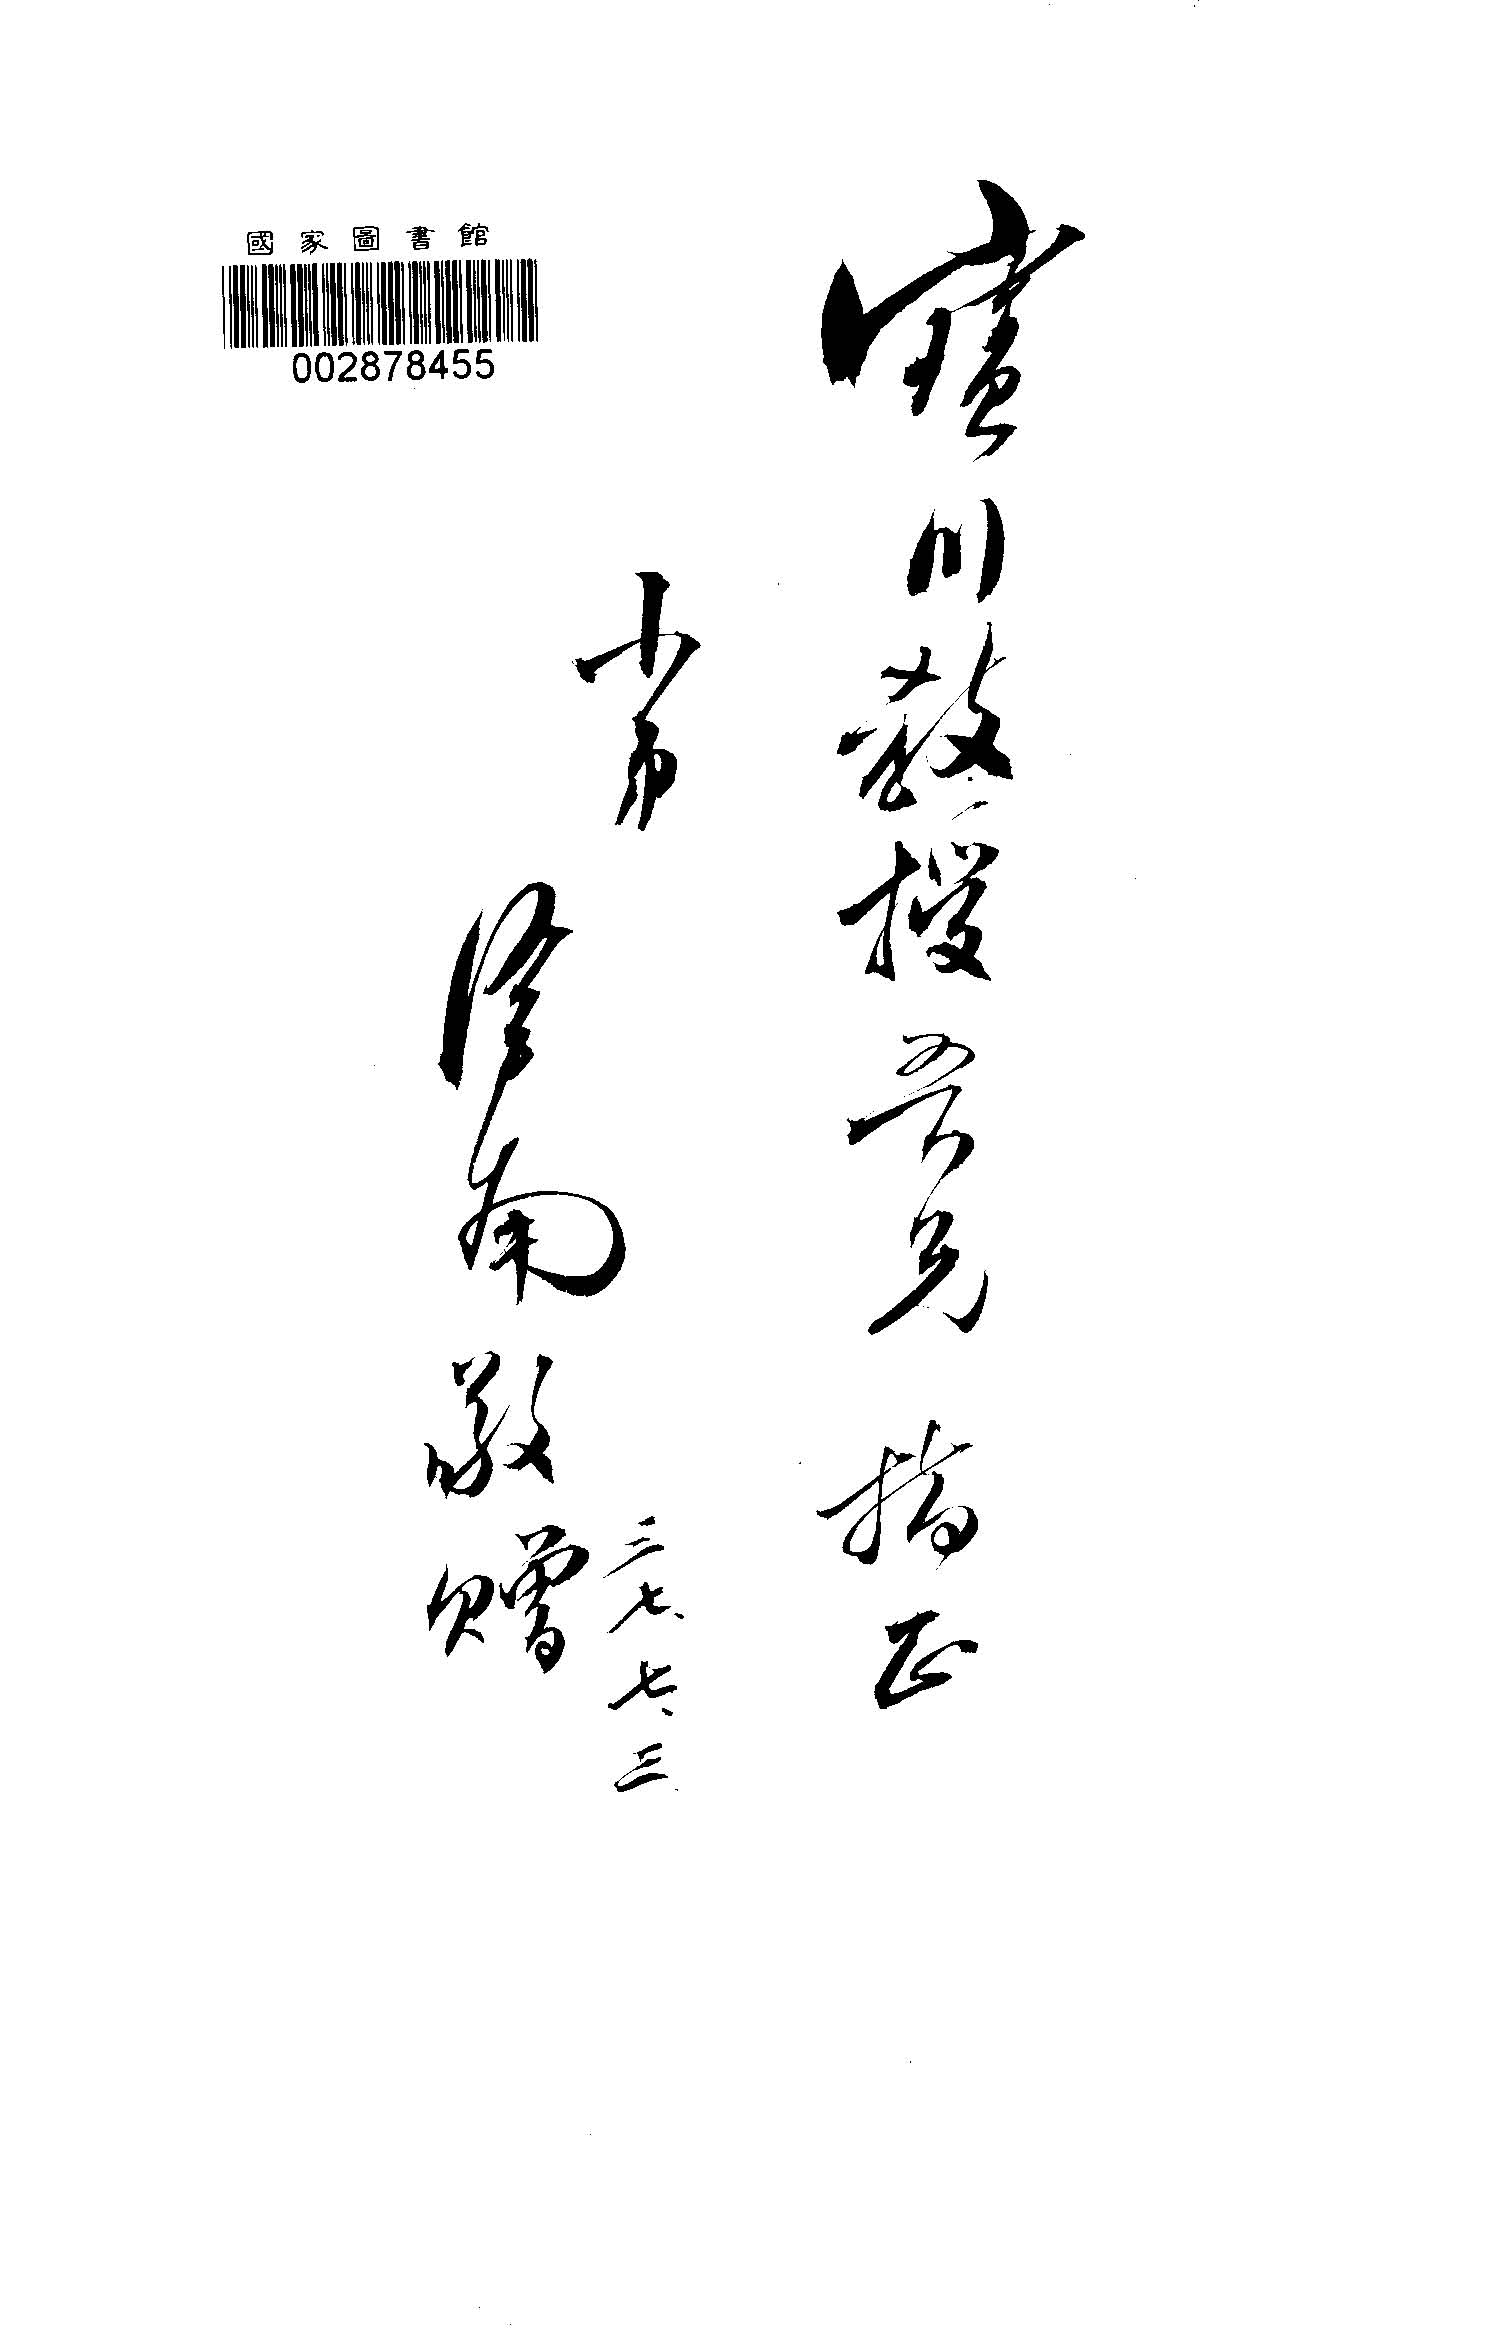 國家圖書館
002878455
寶川教授吾兄 指正
小弟
澤南敬贈
三七、七、三